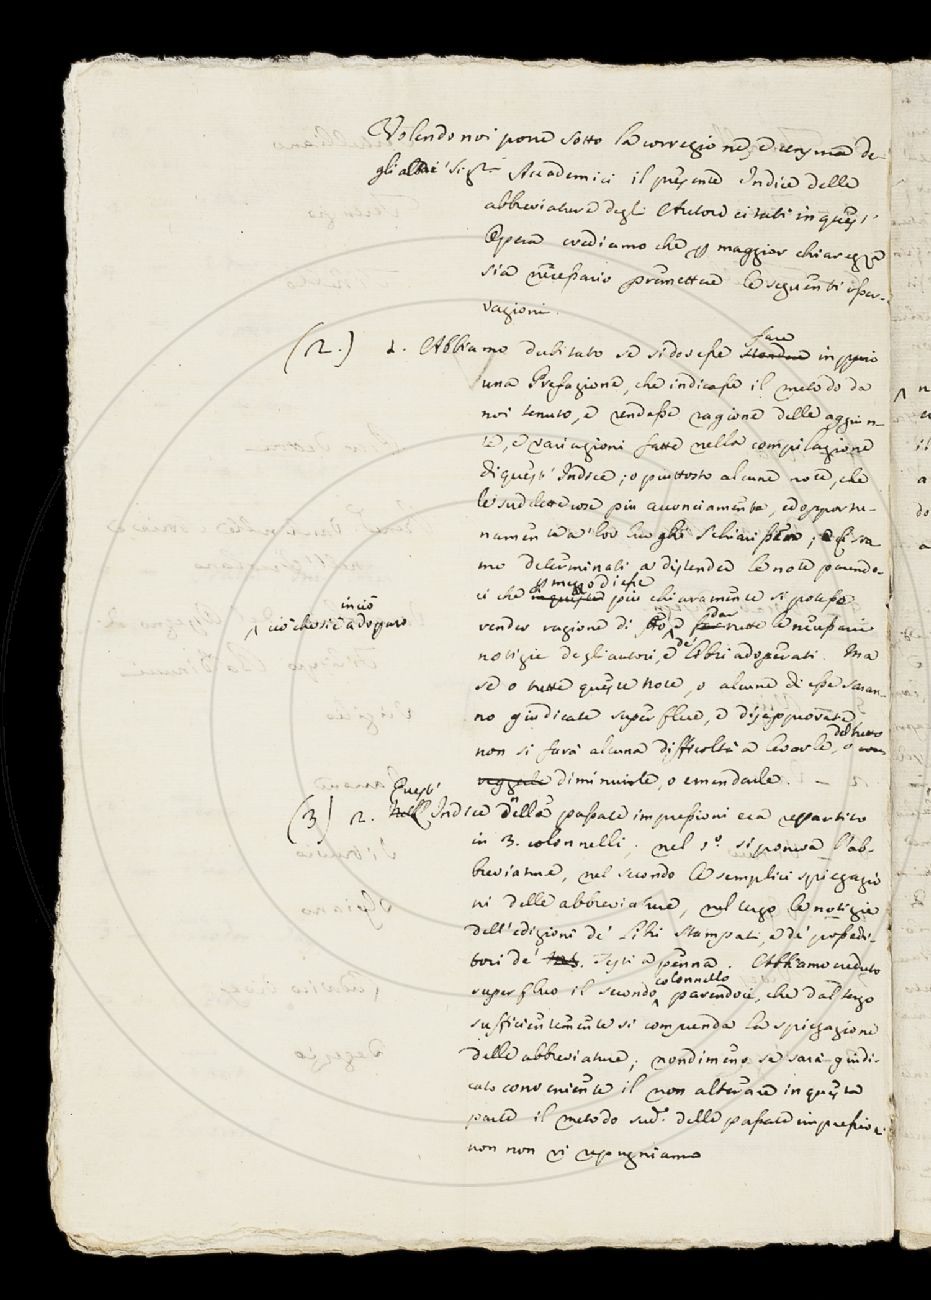 Volendo noi porre sotto la correzione, e censura de-
gli altri Sig.ri Accademici il presente Indice delle
abbreviature degli Autori citati in quest'
Opera crediamo che maggior chiarezza
sia necessario premettere le seguenti osser-
vazioni.
(2.) 1. Abbiamo dubitato se si dovesse fare in
una Prefazione, che indicasse il metodo da
noi tenuto, e rendesse ragione delle aggiun-
te, e variazioni fatte nella compilazione
di quest'Indice; o piuttosto alcune note, che
le suddette cose più acconciamente, ed opportu-
namente a' lor luoghi schiarissero; e ci sia-
mo determinati a distender le note parendo-
ci che più chiaramente si potesse
render ragione di ciò che si è in ciò adoprato e dar tutte le necessarie
notizie degli autori, e de' libri adoperati. Ma
se o tutte queste note, o alcune di esse saran-
no giudicate superflue, e disapprovate,
non si farà alcuna difficoltà a levarle del tutto, o
diminuirle, o emendarle.
(3) 2. Quest' Indice nelle passate impressioni era repartito
in 3. colonnelli; nel 1.o si poneva l'ab-
breviatura, nel secondo le semplici spiegazio
ni delle abbreviature, nel terzo le notizie
dell'edizioni de' Libri stampati, e de' possedi-
tori de' Testi a penna. Abbiamo creduto
superfluo il secondo colonnello parendoci, che dal terzo
sufficientemente si comprenda la spiegazione
delle abbreviature; nondimeno se sarà giudi-
cato conveniente il non alterare in questa
parte il metodo sud.o delle passate impressioni
noi non vi repugniamo